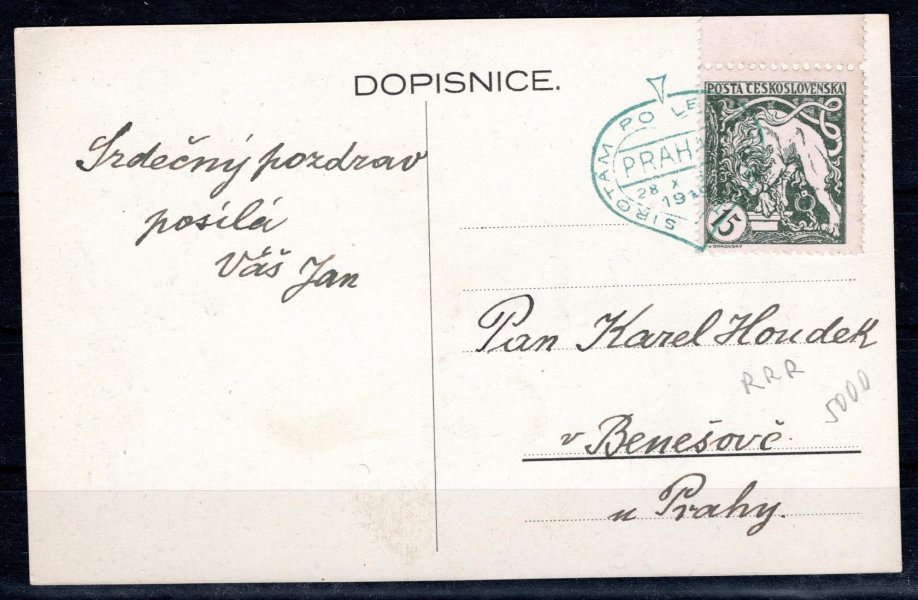 DOPISNICE.
Srdečný pozdrav
posílá
Váš Jan
SIROTÁM PO LE
PRAHA
28 X 19
POŠTA ČESKOSLOVENSKÁ
15
Pan Karel Houdek
RRR
5000
v Benešově
u Prahy.